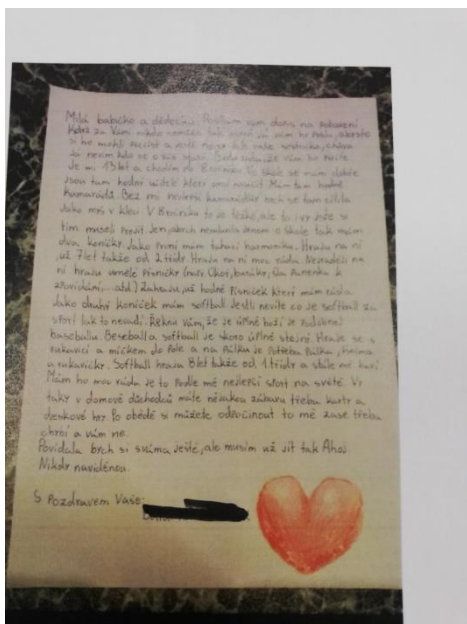 Milá babičko a dědečku, Posílám vám dopis na
když za Vám nikdo nemůže tak jsem já vám ho Pošlu, abyste
si ho mohli Přečíst a
Já nevím kdo se o vás stará. Budu ráda, že vám ho
Je mi 13 let a chodím do Ve škole se mám dobře
jsou tam hodní učitelé kteří umí naučit Mám tam hodně
kamarádů. Bez mí nejlepší kamarádky bych se tam cítila
Jako myš v kleci V to je těžké, ale to i vy jste si
tím museli Projít Jen, abych nemluvila Jenom o škole tak mám
dva koníčky Jako první mám tahací harmonika. Hraju na ní
už 7 let takže od 2. třídy Hraju na ní moc ráda
ní hraju umělé Písničky
atd.) Zahraju už hodně Písniček který mám ráda
Jako druhý Koníček mám softball Jestli nevíte co je softball za
sport tak to nevadí. Řeknu vám, že je úplně boží je Podobný
baseballu. Beseball a softball je skoro úplně stejný. Hraje se s
rukavicí a míčkem do Pole a na Pálku je Potřeba Pálka, helma
a rukavičky. Softball hraju 8 let takže od 1. třídy a stále mě baví
Mám ho moc ráda je to Podle mě nejlepší sport na světě. Vy
taky v domově důchodců máte nějakou zábavu třeba karty a
deskové hry. Po obědě si můžete odpočinout to mě zase třeba
chybí a vám ne.
Povídala bych si s váma ještě, ale musím už jít tak Ahoj
S Pozdravem Vaše: